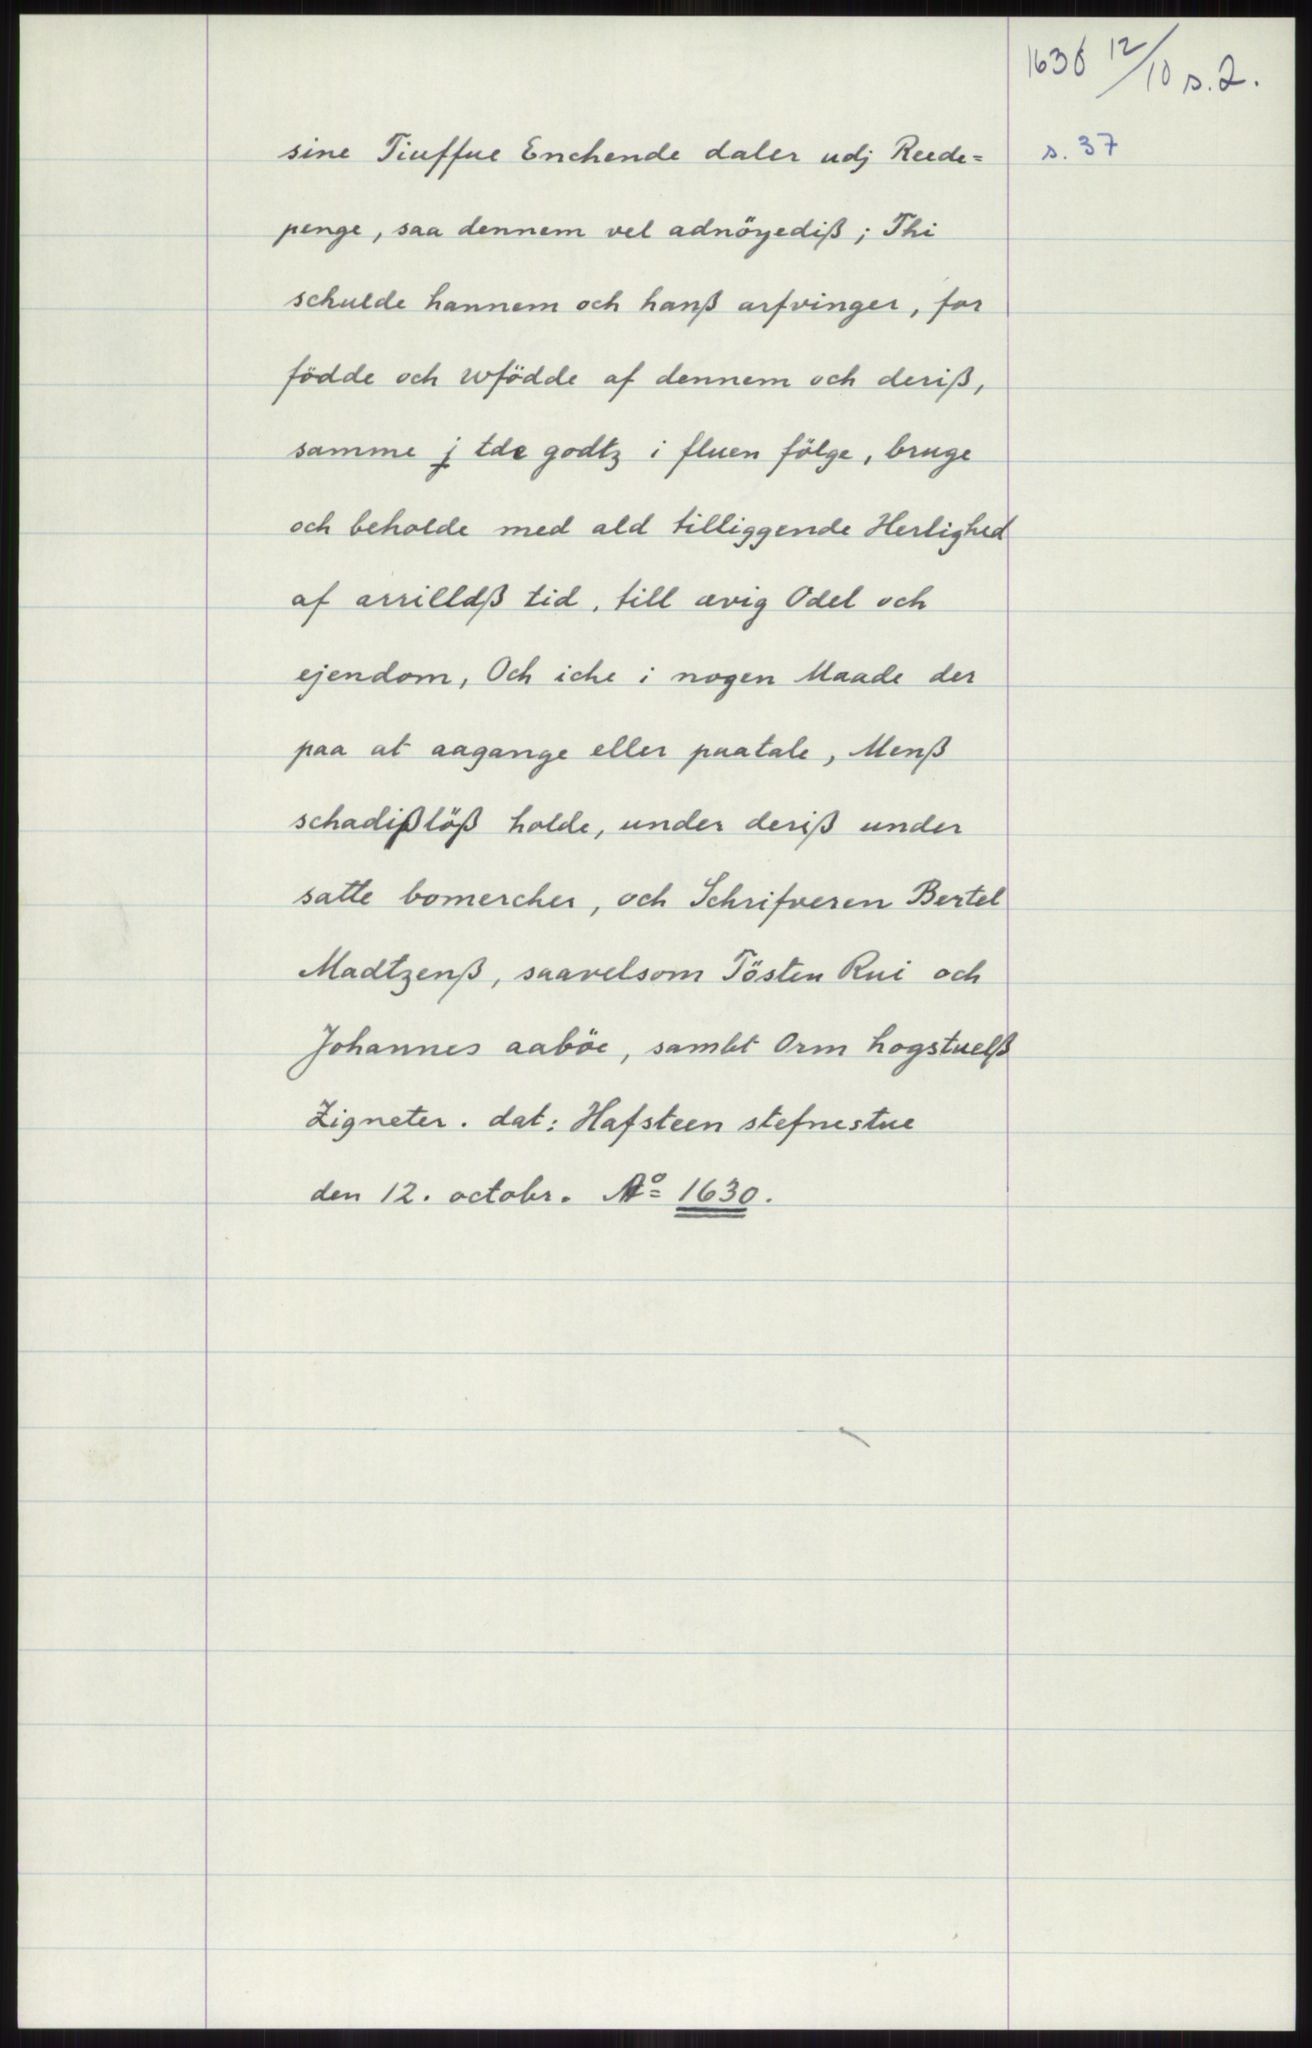 1630 12/10 s. 2.
s. 37
sine Tiuffue Enchende daler udj Reede=
penge, saa dennem vel adnöyediß; Thi
schulde hannem och hanß arfvinger, for
födde och wfödde af dennem och deriß,
samme j tde godtz i fluen fölge, bruge
och beholde med ald tilliggende Herlighed
af arrilldß tid, till ævig Odel och
ejendom, Och iche i nogen Maade der
paa at aagange eller paatale, Menß
schadißlöß holde, under deriß under
satte bomercher, och Schrifveren Bertel
Madtzenß, saavelsom Tösten Rui och
Johannes aaböe, sambt Orm hogstuelß
Zigneter. dat: Hafsteen stefnestue
den 12. octobr. Ao= 1630.